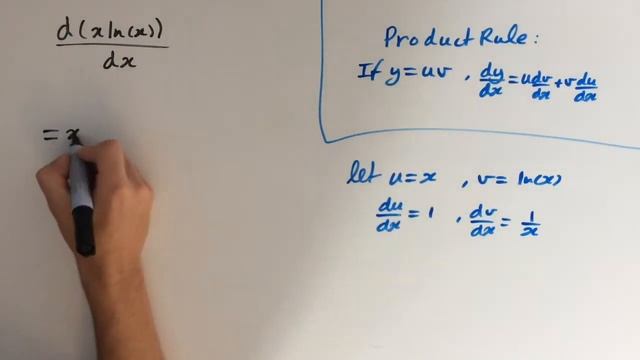 d(xln(x))
dx
= x
Product Rule:
If y=uv , dy/dx = u dv/dx + v du/dx
let u=x , v= ln(x)
du/dx = 1 , dv/dx = 1/x